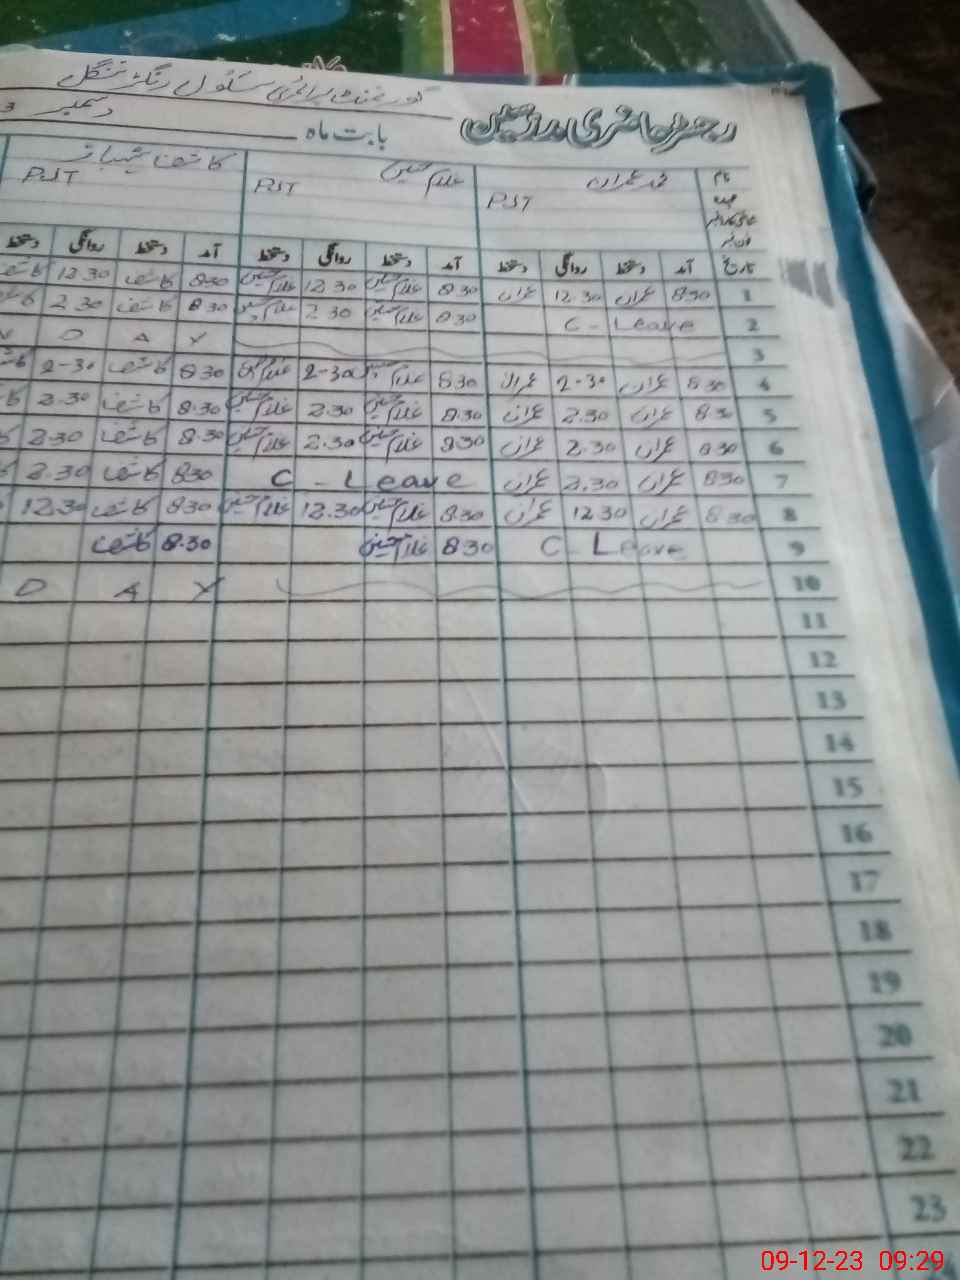 گورنمنٹ پرائمری سکول
رجسٹر حاضری مدرسین بابت ماہ دسمبر
نام محمد عمران غلام حسین کاشف شہباز
عہدہ PST PST PST
تاریخ آمد دستخط روانگی دستخط آمد دستخط روانگی دستخط آمد دستخط روانگی دستخط
1 8.30 عمران 12.30 عمران 8.30 غلام حسین 12.30 غلام حسین 8.30 کاشف 12.30
2 C - Leave 8.30 غلام حسین 2.30 غلام حسین 8.30 کاشف 2.30
3 D A Y
4 8.30 عمران 2-30 عمران 8.30 غلام حسین 2-30 غلام حسین 8.30 کاشف 2-30
5 8.30 عمران 2.30 عمران 8.30 غلام حسین 2.30 غلام حسین 8.30 کاشف 2.30
6 8.30 عمران 2.30 عمران 8.30 غلام حسین 2.30 غلام حسین 8.30 کاشف 2.30
7 8.30 عمران 2.30 عمران C - Leave 8.30 کاشف 2.30
8 8.30 عمران 12.30 عمران 8.30 غلام حسین 12.30 غلام حسین 8.30 کاشف 12.30
9 C - Leave 8.30 غلام حسین 8.30 کاشف
10 D A Y
11
12
13
14
15
16
17
18
19
20
21
22
23
09-12-23 09:29